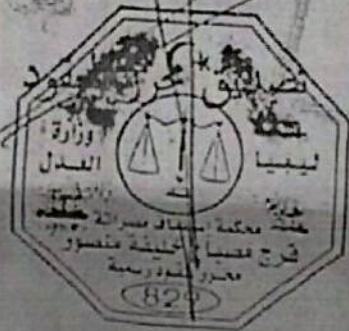 تصديق محرر عقود
وزارة
العدل
ليبيا
محكمة استئناف مصراتة
فرج مصباح خليفة منصور
محرر عقود رسمية
829